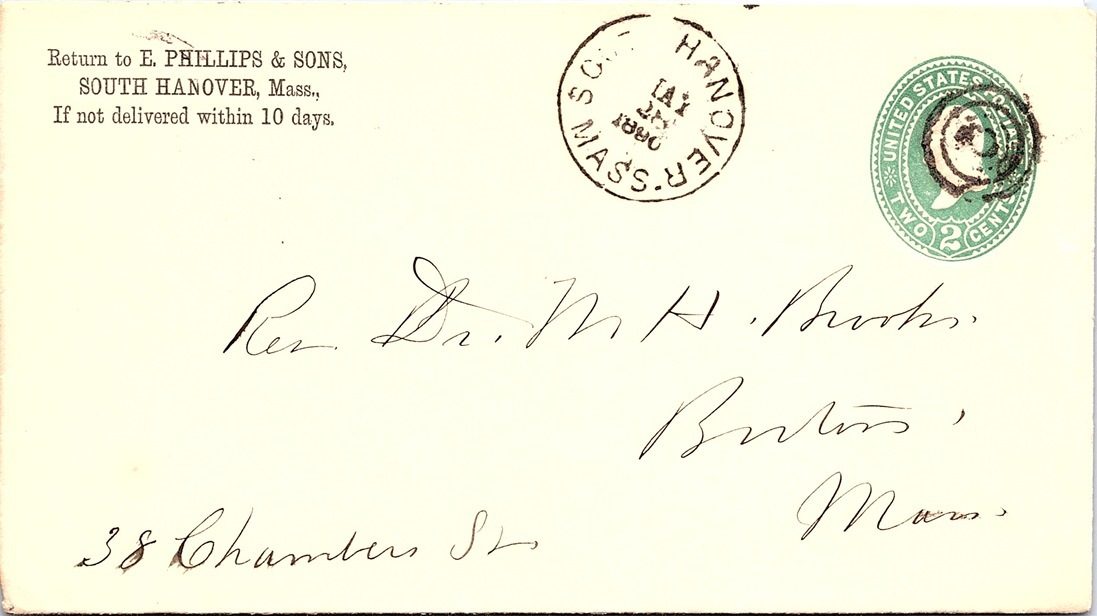 Return to E. PHILLIPS & SONS,
SOUTH HANOVER, Mass.,
If not delivered within 10 days.
HANOVER MASS.
UNITED STATES
TWO 2 CENTS
Rev. Dr. M H. Brooks.
Boston,
Mass.
38 Chambers St.